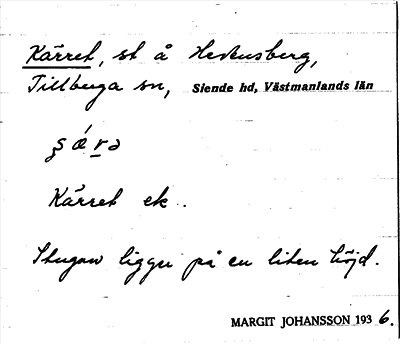 Kärret, st å Hedensberg,
Tillberga sn, Siende hd, Västmanlands län
Kärret ek.
Stugan ligger på en liten höjd.
MARGIT JOHANSSON 1936.